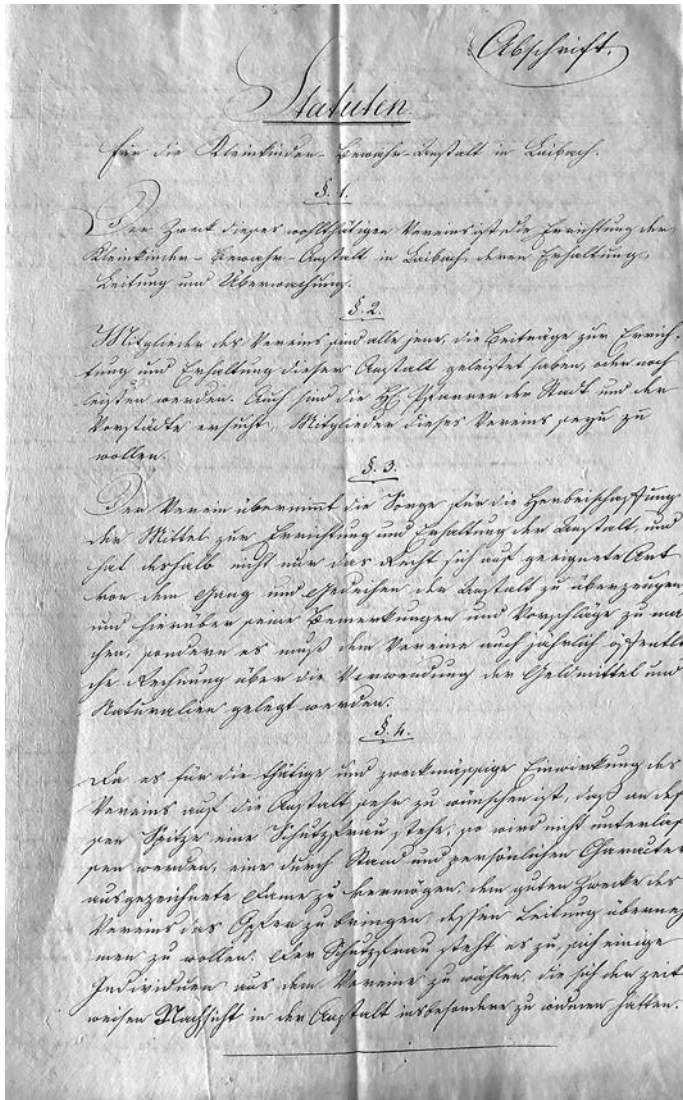 Abschrift.
Statuten
für die Kleinkinder-Bewahr-Anstalt in Laibach.
§. 1.
Der Zweck dieses wohlthätigen Vereins ist die Errichtung der
Kleinkinder-Bewahr-Anstalt in Laibach, deren Erhaltung,
Leitung und Überwachung.
§. 2.
Mitglieder des Vereins sind alle jene, die Beiträge zur Errich-
tung und Erhaltung dieser Anstalt geleistet haben, oder noch
leisten werden. Auch sind die HH. Pfarrer der Stadt und der
Vorstädte ersucht, Mitglieder dieses Vereins seyn zu
wollen.
§. 3.
Der Verein übernimmt die Sorge für die Herbeischaffung
der Mittel zur Errichtung und Erhaltung der Anstalt, und
hat deshalb nicht nur das Recht sich auf geeignete Art
von dem Gang und Gedeihen der Anstalt zu überzeugen,
und hierüber seine Bemerkungen und Vorschläge zu ma-
chen, sondern es muß dem Vereine auch jährlich öffentli-
che Rechnung über die Verwendung der Geldmittel und
Naturalien gelegt werden.
§. 4.
Da es für die thätige und zweckmässige Einwirkung des
Vereins auf die Anstalt sehr zu wünschen ist, daß an des-
sen Spitze eine Schutzfrau stehe, so wird nicht unterlas-
sen werden, eine durch Stand und persönlichen Character
ausgezeichnete Dame zu vermögen, dem guten Zwecke des
Vereins das Opfer zu bringen, dessen Leitung überneh-
men zu wollen. Der Schutzfrau steht es zu, sich einige
Individuen aus dem Vereine zu wählen, die sich der zeit-
weisen Nachsicht in der Anstalt insbesondere zu widmen hätten.